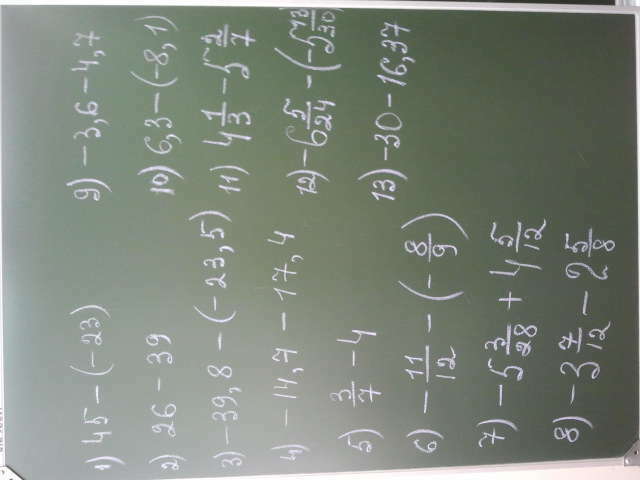 1) 45 - (-23)
2) 26 - 39
3) -39,8 - (-23,5)
4) -14,7 - 17,4
5) 3/7 - 4
6) - 11/12 - (- 8/9)
7) -5 3/28 + 4 5/12
8) -3 7/12 - 2 5/8
9) -3,6 - 4,7
10) 6,3 - (-8,1)
11) 4 1/3 - 5 2/7
12) -6 5/24 - (-5 13/30)
13) -30 - 16,37